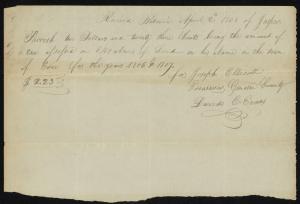 Batavia April 2d 1808 of Jasper
Parrish two Dollars and twenty three Cents being the amount of
a tax assessed on of Land in his name in the town
of for the years 1806 & 1807.
$ 2.23 for Joseph Ellicott
Treasurer, Genesee County
David E Evans